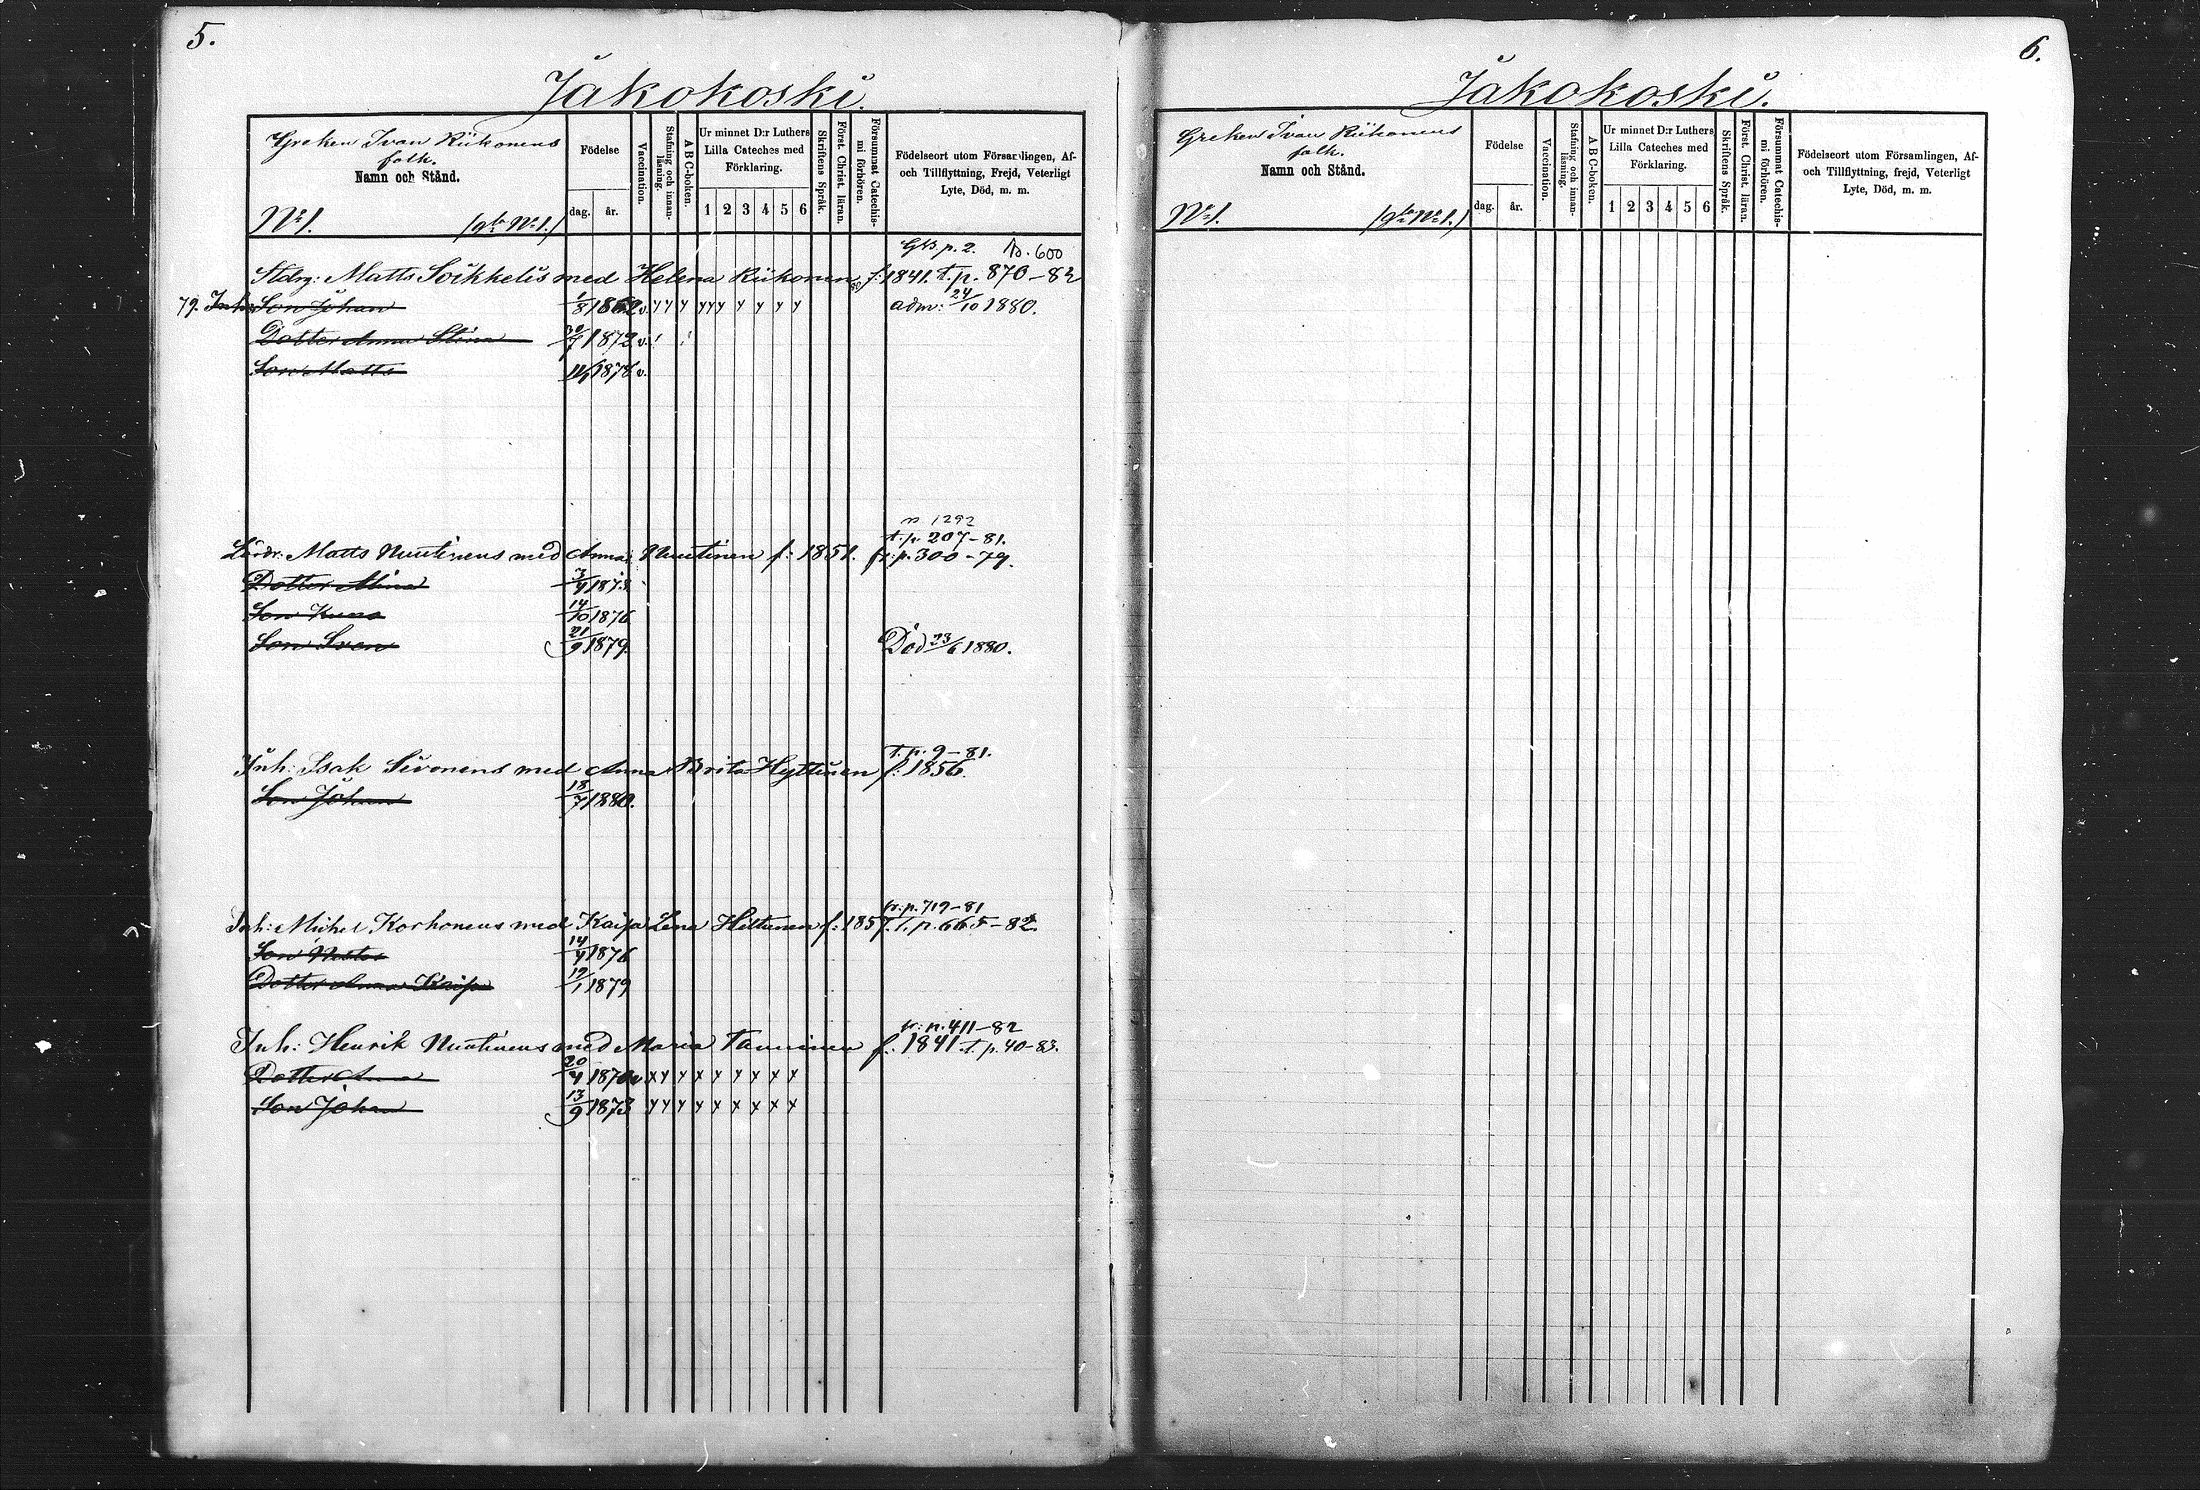 5.
Jakokoski.
Greken Ivan Riikonens
folk.
Namn och Stånd.
No 1. (gla No 1.)
Födelse
dag. år.
Vaccination.
Stafning och innanläsning.
A B C-boken.
Ur minnet D:r Luthers
Lilla Cateches med
Förklaring.
1 2 3 4 5 6
Skriftens Språk.
Först. Christ. läran.
Försummat Catechismi förhören.
Födelseort utom Församlingen, Af-
och Tillflyttning, Frejd, Veterligt
Lyte, Död, m. m.
Gkb. p. 2. No. 600
Stdrg: Matts Soikkelis med Helena Riikonen f: 1841. t. p. 870-82
79. Inh. Son Johan 1/8 1862 v. y y y y y y y y y y adm: 24/10 1880.
Dotter Anna Stina 30/7 1872 v.
Son Matts 1878 v.
n 1292
t. p. 207-81.
Lösdr: Matts Nuutinens med Anna Nuutinen f: 1851. fr: p. 300-79.
Dotter Alina 3/4 1873
Son Kuno 14/10 1876
Son Sven 21/9 1879. Död 23/6 1880.
T. p. 9-81.
Inh: Isak Sivonens med Anna Brita Hyttinen f: 1856.
Son Johan 18/7 1880.
fr: p. 719-81
Inh: Michel Korhonens med Kaisa Lena Hiltunen f: 1857. T. p. 665-82.
Son Nestor 14/4 1876
Dotter Anna Kaisa 19/1 1879
fr: p. 411-82
Inh: Henrik Nuutinens med Maria Tanninen f: 1841 t. p. 40-83.
Dotter Anna 20/4 1870 v x y y x y y y y y
Son Johan 13/9 1873 y y y y x x x x x
6.
Jakokoski.
Greken Ivan Riikonens
folk.
Namn och Stånd.
No 1. (gla No 1.)
Födelse
dag. år.
Vaccination.
Stafning och innanläsning.
A B C-boken.
Ur minnet D:r Luthers
Lilla Cateches med
Förklaring.
1 2 3 4 5 6
Skriftens Språk.
Först. Christ. läran.
Försummat Catechismi förhören.
Födelseort utom Församlingen, Af-
och Tillflyttning, frejd, Veterligt
Lyte, Död, m. m.